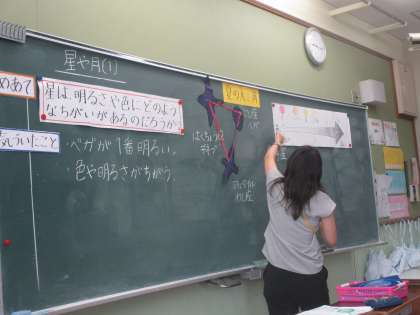 星や月(1)
めあて
星は、明るさや色にどのよう
なちがいがあるのだろうか。
気づいたこと
・ベガが1番明るい。
・色や明るさがちがう。
夏の大三角
はくちょう座
デネブ
こと座
ベガ
アルタイル
わし座